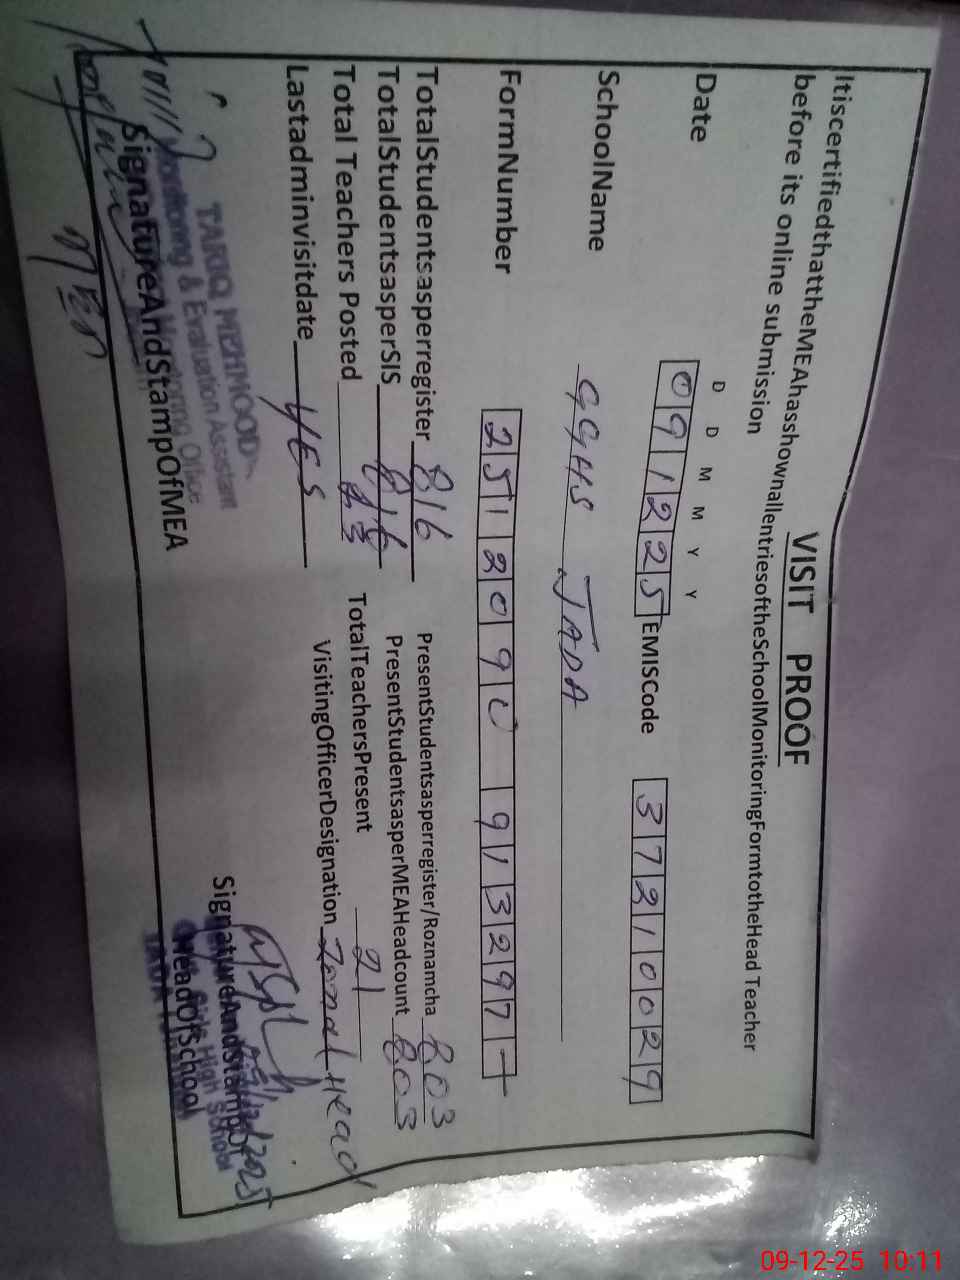 VISIT PROOF
ItiscertifiedthattheMEAhasshownallentriesoftheSchoolMonitoringFormtotheHead Teacher
before its online submission
D D M M Y Y
Date 091225 EMISCode 37210029
SchoolName GGHS JADA
FormNumber 2512090 913297
TotalStudentsasperregister 816 PresentStudentsasperregister/Roznamcha 803
TotalStudentsasperSIS 816 PresentStudentsasperMEAHeadcount 803
Total Teachers Posted 23 TotalTeachersPresent 21
Lastadminvisitdate YES VisitingOfficerDesignation Zonal Head
TARIQ MEHMOOD
Monitoring & Evaluation Assistant
SignatureAndStampOfMEA
SignatureAndStampOf
HeadOfSchool
Girls High School
JADA
09/12/2025
09-12-25 10:11